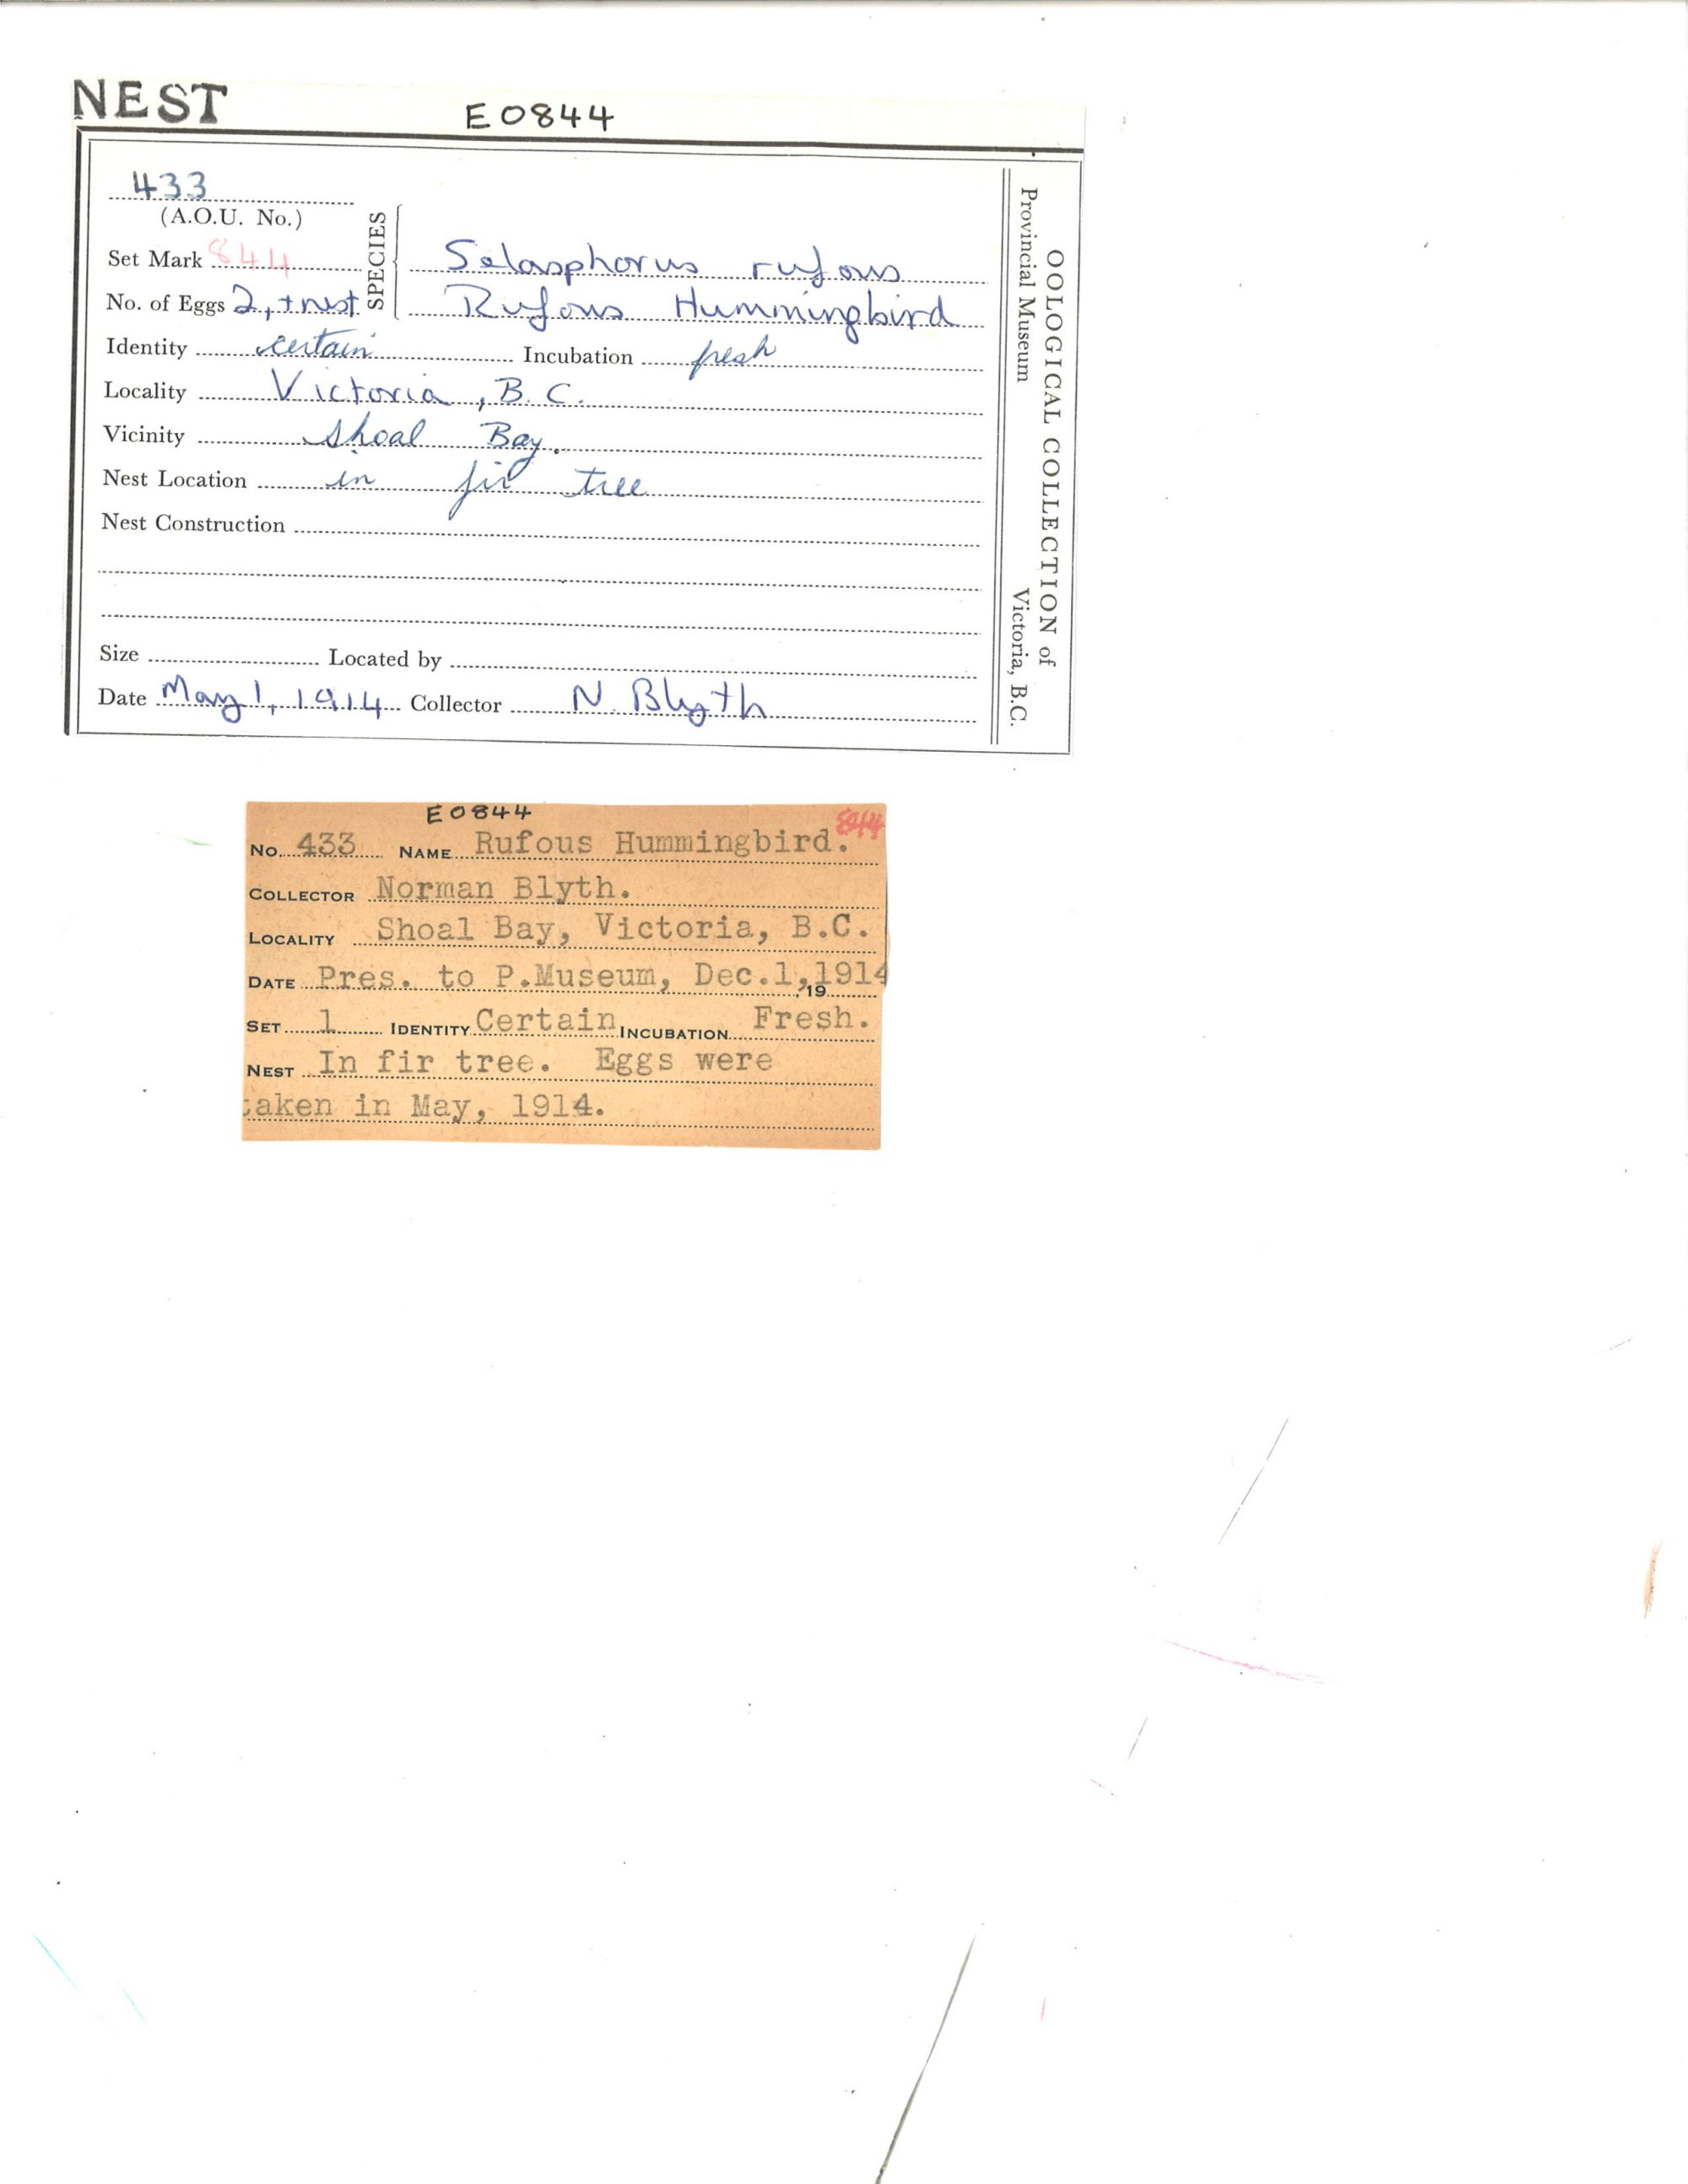 NEST
E0844
433
(A.O.U. No.)
SPECIES
Set Mark 844
Selasphorus rufous
No. of Eggs 2, + nest
Rufous Hummingbird
Identity certain Incubation fresh
Locality Victoria, B.C.
Vicinity Shoal Bay.
Nest Location in fir tree
Nest Construction
Size Located by
Date May 1, 1914 Collector N. Blyth
OOLOGICAL COLLECTION of
Provincial Museum Victoria, B.C.
E0844
844
No. 433 NAME Rufous Hummingbird.
COLLECTOR Norman Blyth.
LOCALITY Shoal Bay, Victoria, B.C.
DATE Pres. to P.Museum, Dec.1,1914
, 19
SET 1 IDENTITY Certain INCUBATION Fresh.
NEST In fir tree. Eggs were
taken in May, 1914.